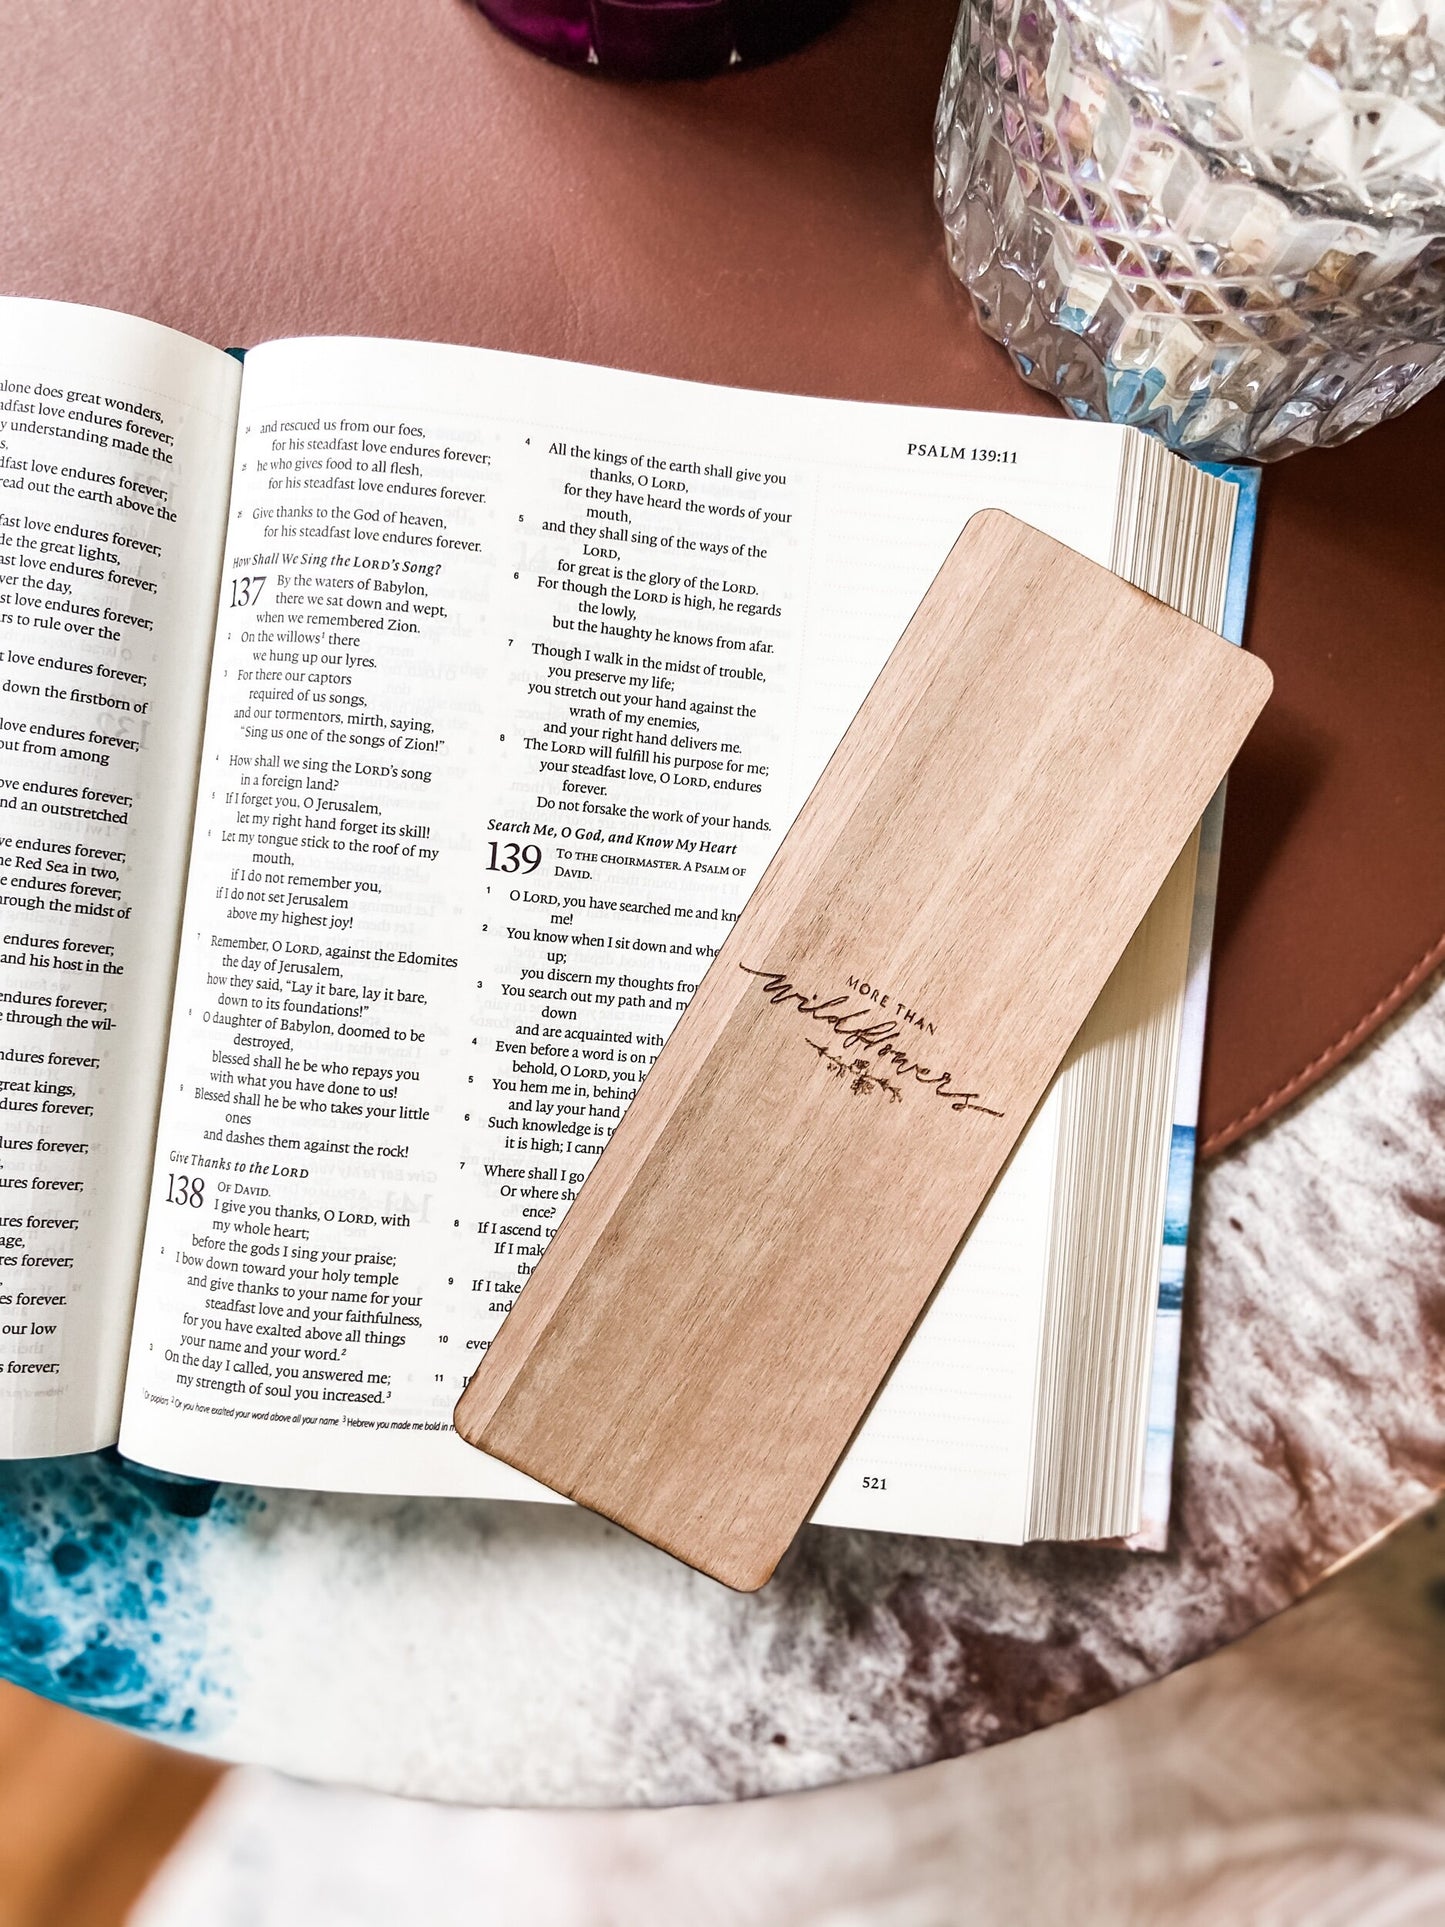 alone does great wonders,
steadfast love endures forever;
understanding made the
love endures forever;
out the earth above the
love endures forever;
the great lights,
love endures forever;
over the day,
love endures forever;
to rule over the
love endures forever;
down the firstborn of
love endures forever;
out from among
endures forever;
an outstretched
endures forever;
Red Sea in two,
endures forever;
through the midst of
endures forever;
and his host in the
endures forever;
through the wil-
endures forever;
great kings,
endures forever;
forever;
forever;
forever;
forever;
forever.
our low
forever;
24 and rescued us from our foes,
for his steadfast love endures forever;
25 he who gives food to all flesh,
for his steadfast love endures forever.
26 Give thanks to the God of heaven,
for his steadfast love endures forever.
How Shall We Sing the LORD's Song?
137 By the waters of Babylon,
there we sat down and wept,
when we remembered Zion.
2 On the willows¹ there
we hung up our lyres.
3 For there our captors
required of us songs,
and our tormentors, mirth, saying,
“Sing us one of the songs of Zion!”
4 How shall we sing the LORD's song
in a foreign land?
5 If I forget you, O Jerusalem,
let my right hand forget its skill!
6 Let my tongue stick to the roof of my
mouth,
if I do not remember you,
if I do not set Jerusalem
above my highest joy!
7 Remember, O LORD, against the Edomites
the day of Jerusalem,
how they said, “Lay it bare, lay it bare,
down to its foundations!”
8 O daughter of Babylon, doomed to be
destroyed,
blessed shall he be who repays you
with what you have done to us!
9 Blessed shall he be who takes your little
ones
and dashes them against the rock!
Give Thanks to the LORD
138 OF DAVID.
I give you thanks, O LORD, with
my whole heart;
before the gods I sing your praise;
2 I bow down toward your holy temple
and give thanks to your name for your
steadfast love and your faithfulness,
for you have exalted above all things
your name and your word.²
3 On the day I called, you answered me;
my strength of soul you increased.³
¹ Or poplars ² Or you have exalted your word above all your name ³ Hebrew you made me bold in
PSALM 139:11
4 All the kings of the earth shall give you
thanks, O LORD,
for they have heard the words of your
mouth,
5 and they shall sing of the ways of the
LORD,
for great is the glory of the LORD.
6 For though the LORD is high, he regards
the lowly,
but the haughty he knows from afar.
7 Though I walk in the midst of trouble,
you preserve my life;
you stretch out your hand against the
wrath of my enemies,
and your right hand delivers me.
8 The LORD will fulfill his purpose for me;
your steadfast love, O LORD, endures
forever.
Do not forsake the work of your hands.
Search Me, O God, and Know My Heart
139 TO THE CHOIRMASTER. A PSALM OF
DAVID.
1 O LORD, you have searched me and
me!
2 You know when I sit down and
up;
you discern my thoughts
3 You search out my path and
down
and are acquainted with
4 Even before a word is on
behold, O LORD, you
5 You hem me in, behind
and lay your hand
6 Such knowledge is
it is high; I
7 Where shall I go
Or where
8 If I ascend
If I
9 If I take
and
10
11
521
MORE THAN
wildflowers